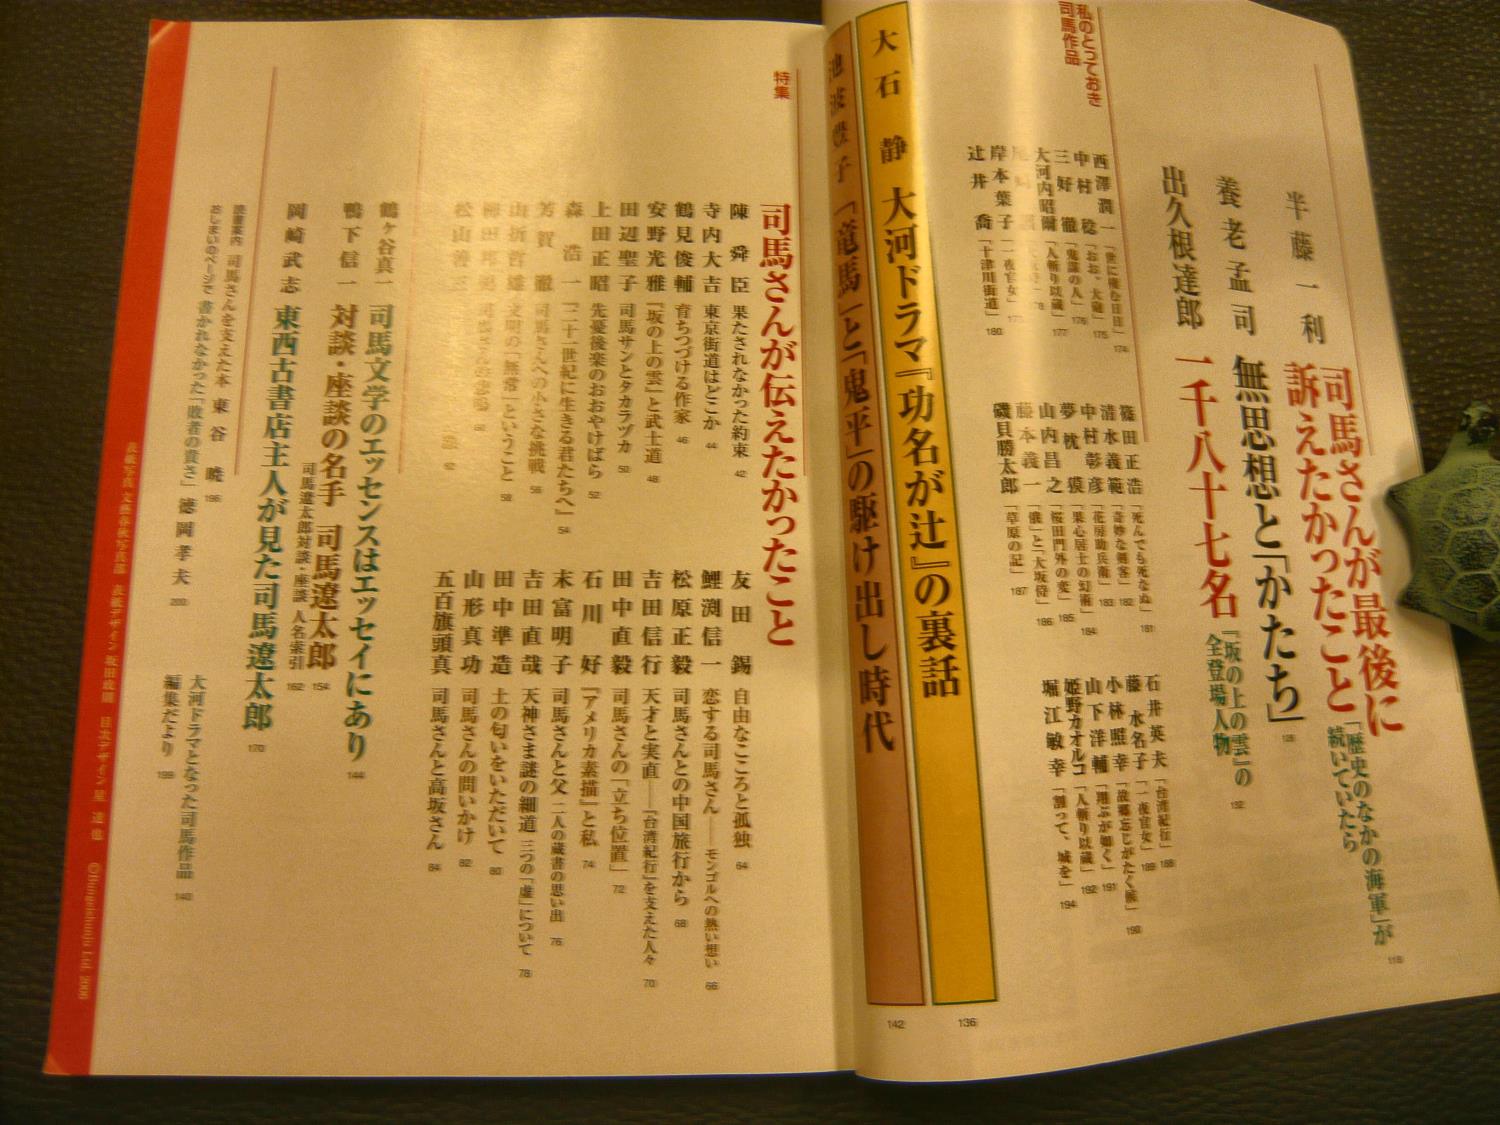 半藤一利
司馬さんが最後に
訴えたかったこと
「歴史のなかの海軍」が
続いていたら 118
養老孟司 無思想と「かたち」
出久根達郎 一千八十七名
「坂の上の雲」の
全登場人物 132
私のとっておき
司馬作品
西澤潤一 174
中村稔 「おお、大砲」 175
三好徹 「鬼謀の人」 176
大河内昭爾 「人斬り以蔵」 177
岸本葉子 「一夜官女」
辻井喬 「十津川街道」 180
篠田正浩 「死んでも死なぬ」 181
清水義範 「奇妙な剣客」 182
中村彰彦 「花房助兵衛」 183
夢枕獏 「果心居士の幻術」 184
山内昌之 「桜田門外の変」 185
藤本義一 「俄」と「大坂侍」 186
磯貝勝太郎 「草原の記」 187
石井英夫 「台湾紀行」 188
藤水名子 「一夜官女」 189
小林照幸 「故郷忘じがたく候」 190
山下洋輔 「翔ぶが如く」 191
姫野カオルコ 「人斬り以蔵」 192
堀江敏幸 「割って、城を」 194
大石静 大河ドラマ『功名が辻』の裏話
136
池波豊子 「竜馬」と「鬼平」の駆け出し時代
142
特集
司馬さんが伝えたかったこと
陳舜臣 果たされなかった約束 42
寺内大吉 東京街道はどこか 44
鶴見俊輔 育ちつづける作家 46
安野光雅 『坂の上の雲』と武士道 48
田辺聖子 司馬サンとタカラヅカ 50
上田正昭 先憂後楽のおおやけばら 52
森浩一 「二十一世紀に生きる君たちへ」 54
芳賀徹 司馬さんへの小さな挑戦 56
山折哲雄 文明の「無常」ということ 58
松山善三 62
友田錫 自由なこころと孤独 64
鯉渕信一 恋する司馬さん――モンゴルへの熱い想い 66
松原正毅 司馬さんとの中国旅行から 68
吉田信行 天才と実直――『台湾紀行』を支えた人々 70
田中直毅 司馬さんの「立ち位置」 72
石川好 『アメリカ素描』と私 74
末富明子 司馬さんと父 二人の蔵書の思い出 76
吉田直哉 天神さま謎の細道 三つの「虚」について 78
田中準造 土の匂いをいただいて 80
山形真功 司馬さんの問いかけ 82
五百旗頭真 司馬さんと高坂さん 84
鶴ヶ谷真一 司馬文学のエッセンスはエッセイにあり 144
鴨下信一 対談・座談の名手 司馬遼太郎 154
司馬遼太郎対談・座談 人名索引 162
岡崎武志 東西古書店主人が見た司馬遼太郎 170
読書案内 司馬さんを支えた本 東谷暁 196
おしまいのページで 書かれなかった「敗者の貴さ」 徳岡孝夫 200
大河ドラマとなった司馬作品 140
編集だより 199
表紙写真 文藝春秋写真部 表紙デザイン 坂田政則 目次デザイン 星達也 ©Bungeishunju Ltd. 2006